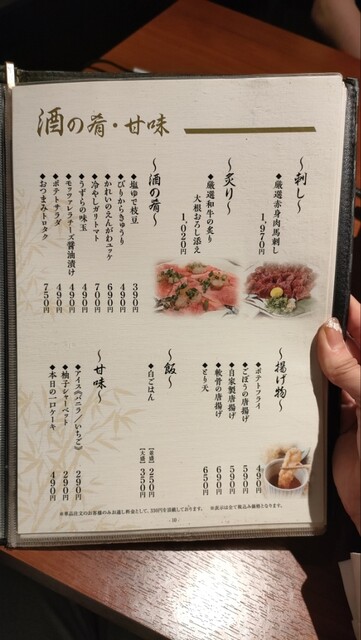 酒の肴・甘味
～刺し～
◆厳選赤身肉馬刺し 1,970円
～炙り～
◆厳選和牛の炙り
大根おろし添え 1,020円
～酒の肴～
◆塩ゆで枝豆 390円
◆ぴりからきゅうり 490円
◆かれいのえんがわユッケ 690円
◆冷やしガリトマト 700円
◆うずらの味玉 490円
◆モッツァレラチーズ醤油漬け 490円
◆ポテトサラダ 490円
◆おつまみトロタク 750円
～揚げ物～
◆ポテトフライ 490円
◆ごぼうの唐揚げ 590円
◆自家製唐揚げ 590円
◆軟骨の唐揚げ 690円
◆とり天 650円
～飯～
◆白ごはん 【普通】250円
【大盛】350円
～甘味～
◆アイス(バニラ/いちご) 290円
◆柚子シャーベット 290円
◆本日の一口ケーキ 490円
※単品注文のお客様のみお通し料金として、330円を頂戴しております。 ※表示は全て税込み価格となります。
- 10 -